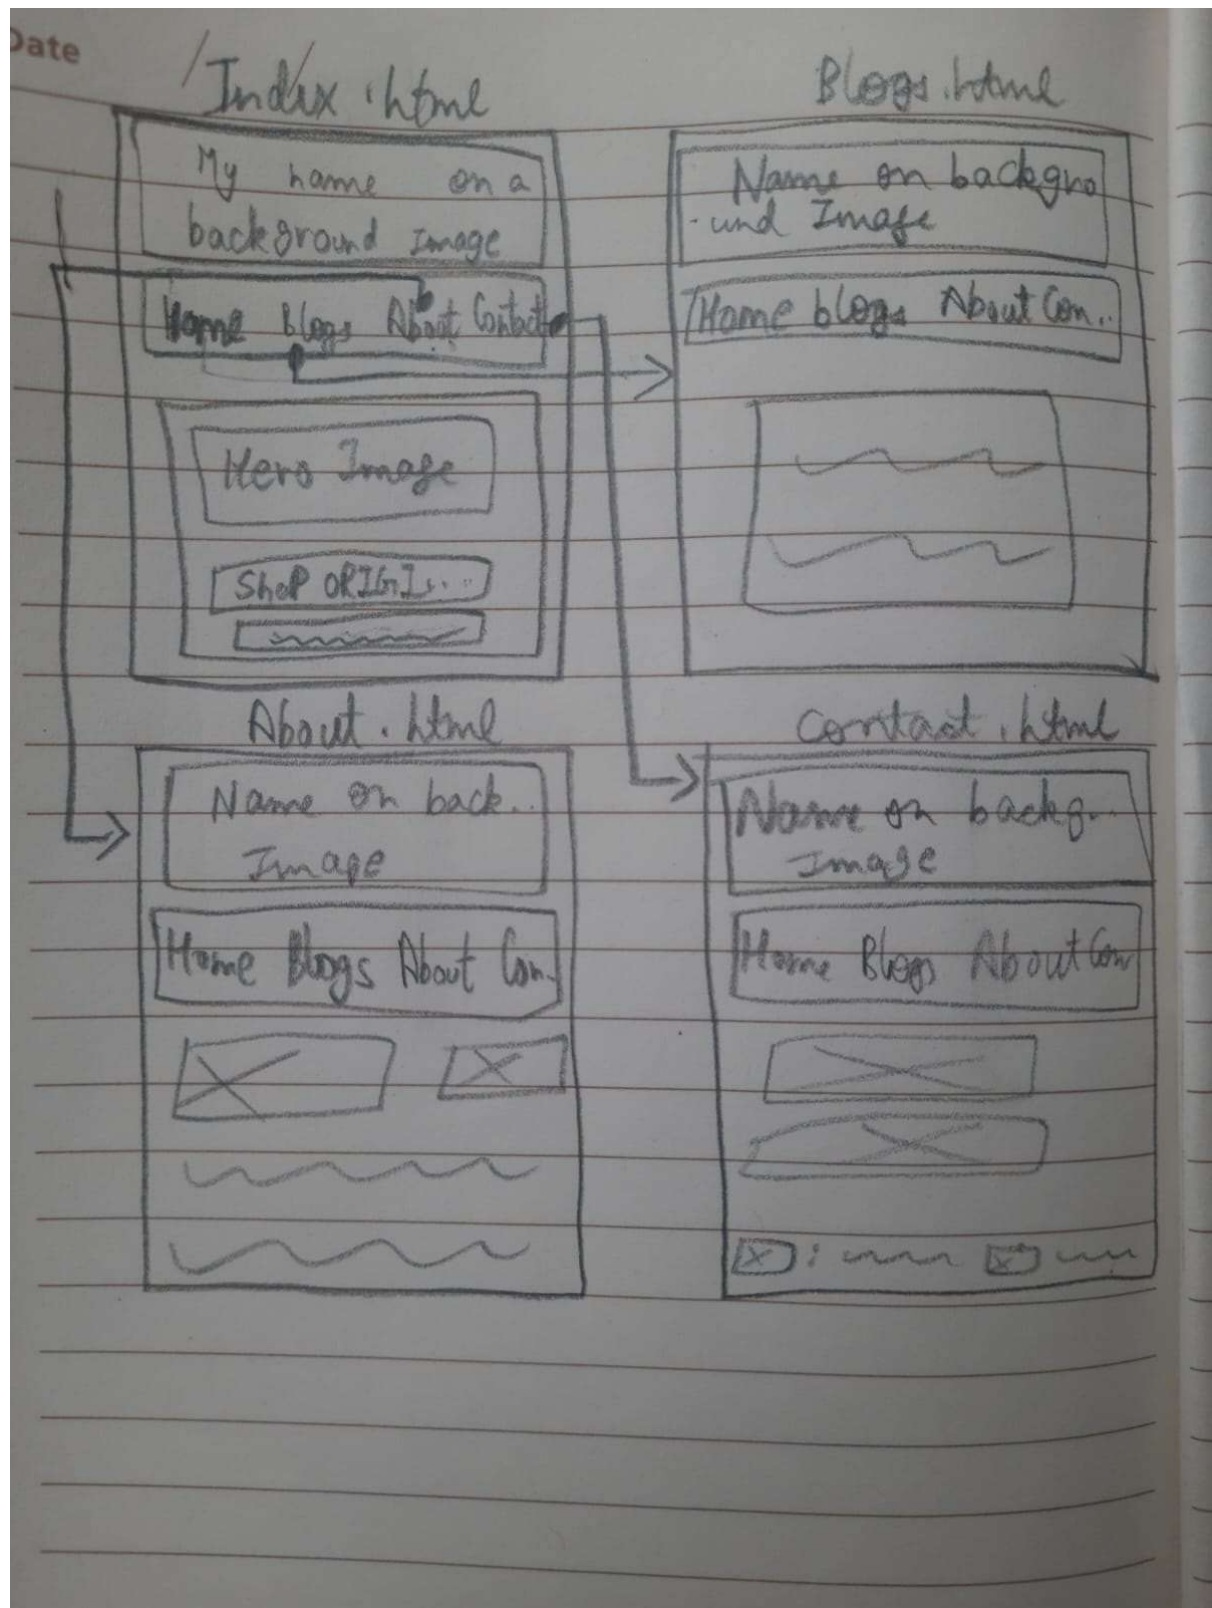 Date
Index.html
My name on a
background Image
Home Blogs About Contact
Hero Image
ShoP ORIGI....
Blogs.html
Name on backgro
-und Image
Home blogs About Con..
About.html
Name on back..
Image
Home Blogs About Con..
Contact.html
Name on backg..
Image
Home Blogs About Con